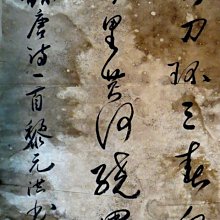 刀环三春白
里黄河绕黑
唐诗一首黎元洪书